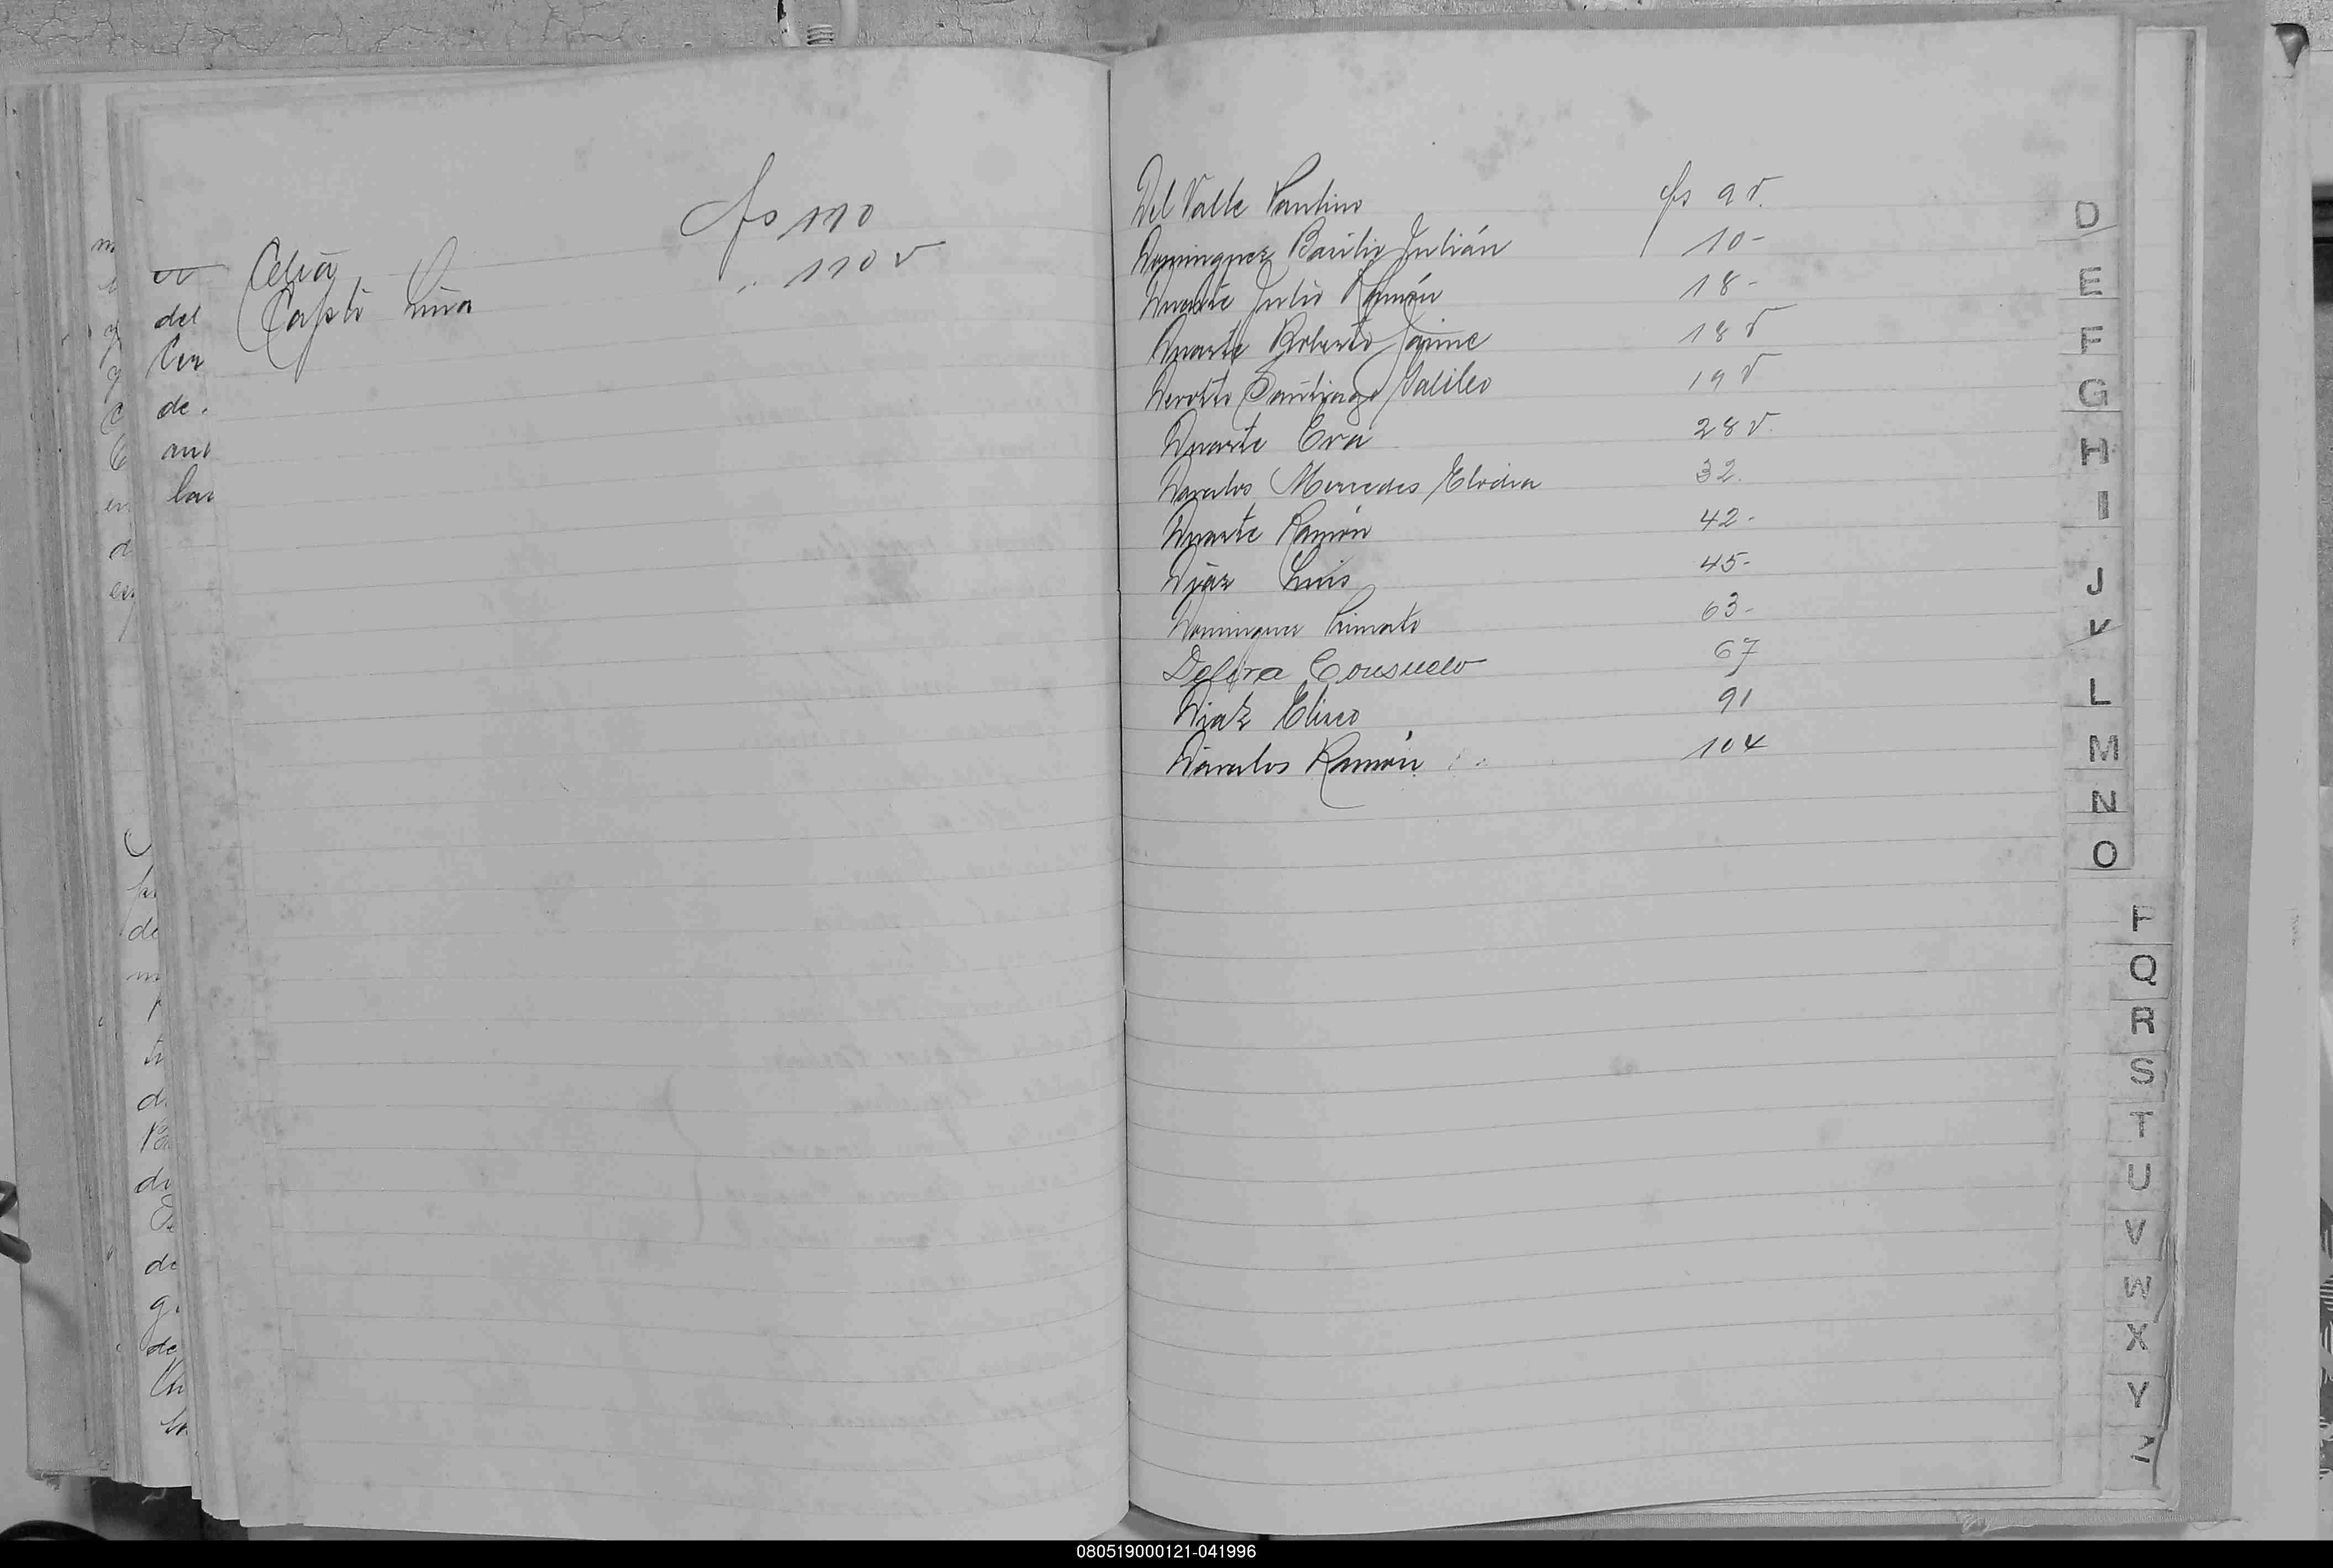 fs 110
Celia
Casti Lina " 110 v
del
Cer
de
Del Valle Paulino fs 9 v.
Dominguez Basilio Julián 10-
Duarte Julio Ramón 18-
Duarte Roberto Jaime 18 v
Devotto Santiago Galileo 19 v
Duarte Eva 28 v.
Davalos Mercedes Elodia 32.
Duarte Ramón 42-
Díaz Luis 45-
Dominguez 63-
Consuelo 67
Diaz Eliseo 91
Dávalos Ramón 104
D
E
F
G
H
I
J
K
L
M
N
O
P
Q
R
S
T
U
V
W
X
Y
Z
080519000121-041996